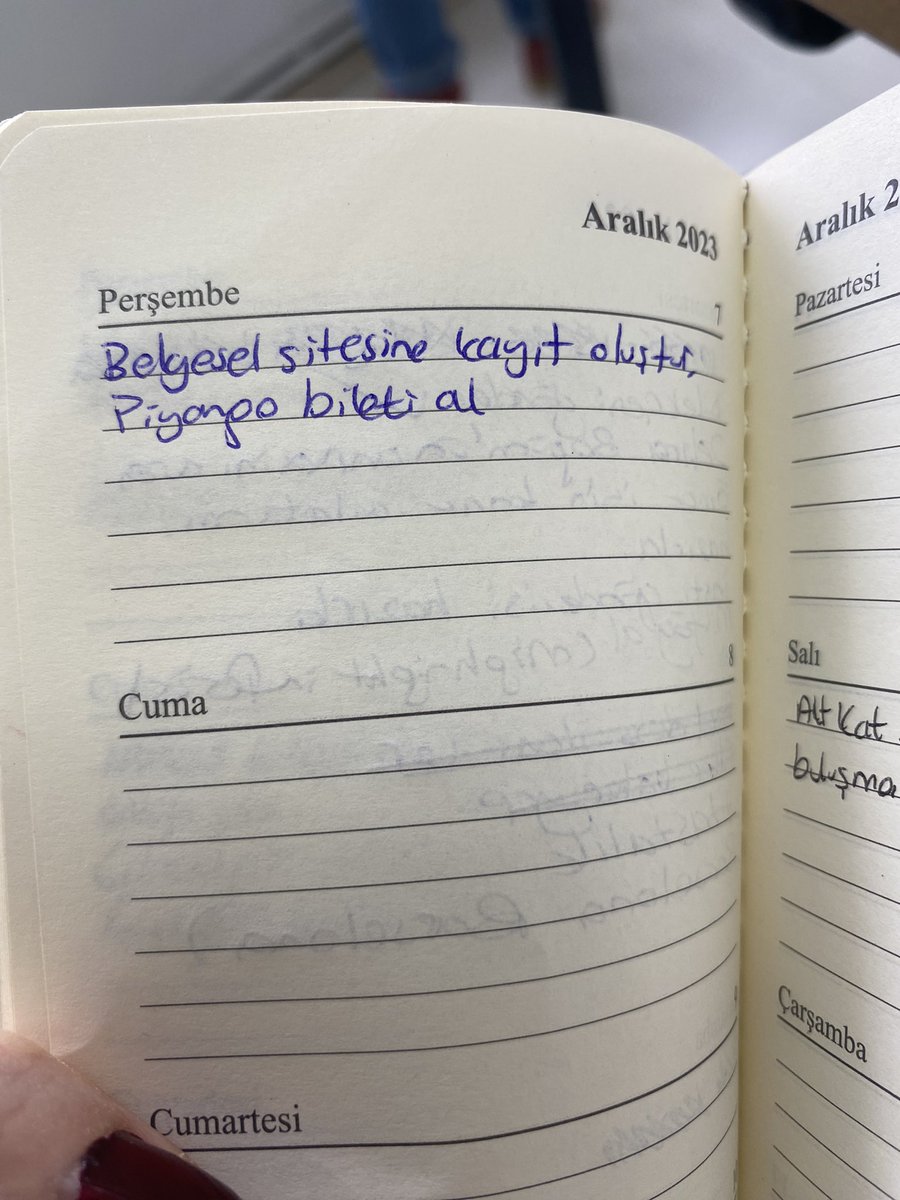 Aralık 2023
Perşembe 7
Belgesel sitesine kayıt oluştur,
Piyango bileti al
Cuma 8
Cumartesi 9
Aralık 2
Pazartesi
Salı
Alt Kat
buluşma
Çarşamba